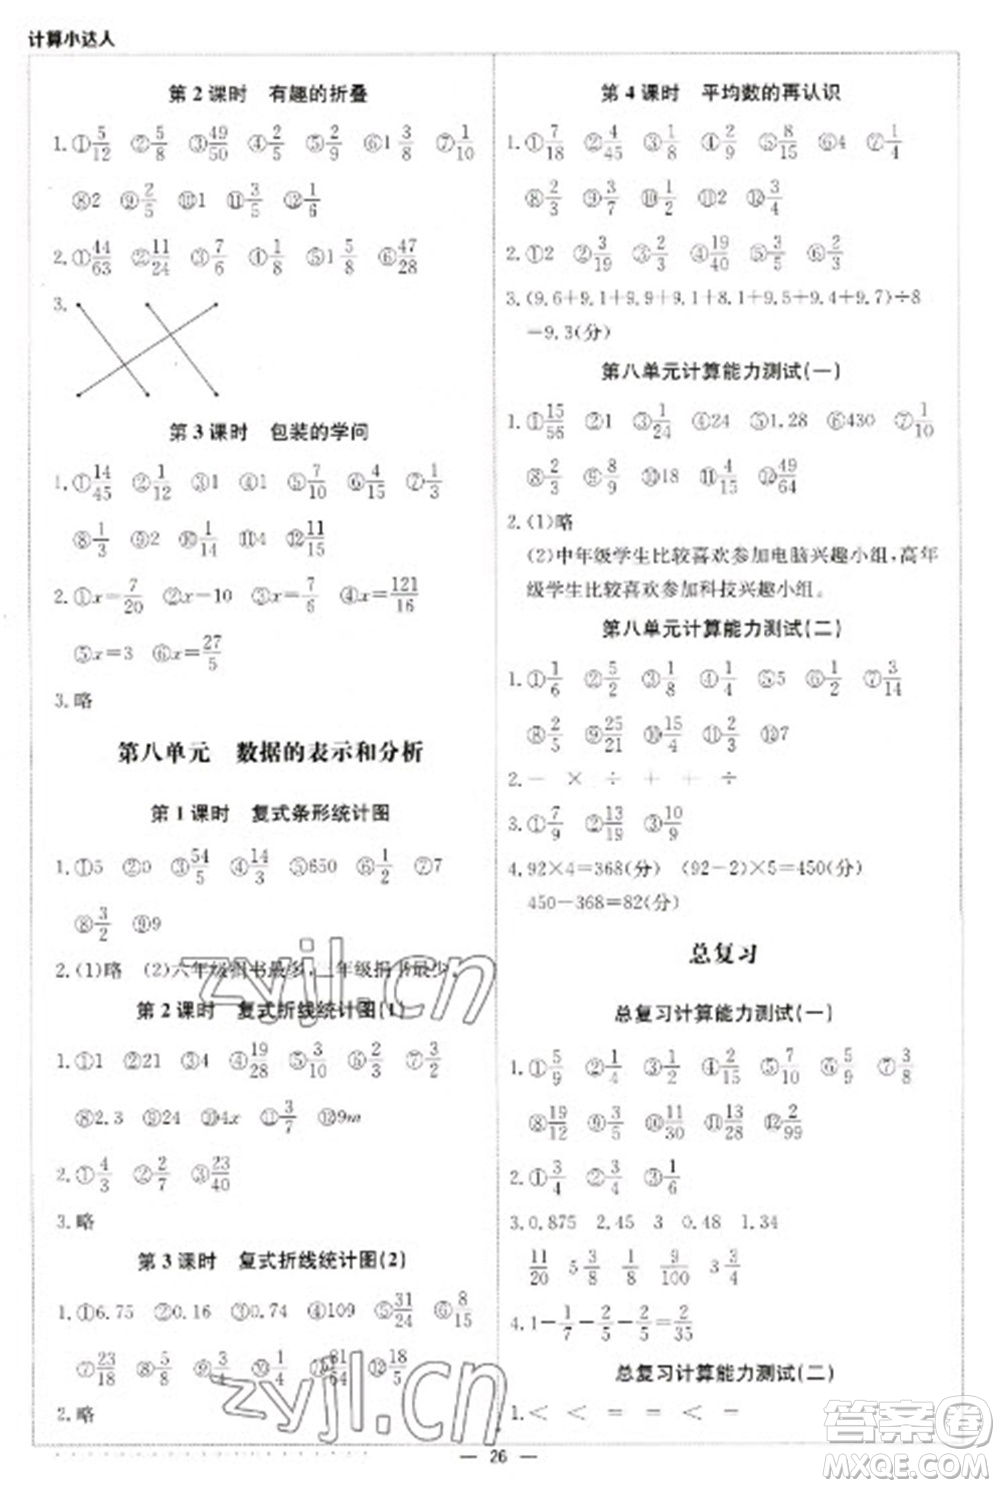 计算小达人
第2课时 有趣的折叠
1.①5/12 ②5/8 ③49/50 ④3/10 ⑤2/9 ⑥1 3/8 ⑦1/10
⑧2 ⑨2/5 ⑩1/4 ⑪3/5 ⑫1/6
2.①44/63 ②11/24 ③7/6 ④1/8 ⑤1 5/8 ⑥47/28
3.
第3课时 包装的学问
1.①14/45 ②1/12 ③1 ④1 ⑤7/10 ⑥4/15 ⑦1/3
⑧1/3 ⑨2 ⑩1/14 ⑪3 ⑫11/15
2.①x=7/20 ②x=10 ③x=7/6 ④x=121/16
⑤x=3 ⑥x=27/5
3.略
第八单元 数据的表示和分析
第1课时 复式条形统计图
1.①5 ②0 ③54/5 ④14/3 ⑤650 ⑥1/2 ⑦7
⑧3/2 ⑨9
2.(1)略 (2)六年级捐书最多,二年级捐书最少。
第2课时 复式折线统计图(1)
1.①1 ②21 ③4 ④19/28 ⑤3/10 ⑥2/3 ⑦3/2
⑧2.3 ⑨24 ⑩4x ⑪3/7 ⑫9m
2.①4/3 ②2/7 ③23/40
3.略
第3课时 复式折线统计图(2)
1.①6.75 ②0.16 ③0.74 ④109 ⑤31/24 ⑥8/15
⑦23/18 ⑧5/8 ⑨3 ⑩1/4 ⑪81/64 ⑫18/5
2.略
第4课时 平均数的再认识
1.①7/18 ②4/45 ③1/8 ④2/9 ⑤8/15 ⑥4 ⑦1/4
⑧2/3 ⑨3/7 ⑩1/2 ⑪2 ⑫3/4
2.①2 ②3/19 ③2/3 ④19/40 ⑤3/5 ⑥2/3
3.(9.6+9.1+8.9+9.1+8.1+9.5+9.4+9.7)÷8
=9.3(分)
第八单元计算能力测试(一)
1.①15/56 ②2 ③1/24 ④24 ⑤1.28 ⑥430 ⑦1/10
⑧2/3 ⑨8/9 ⑩16 ⑪4/7 ⑫49/64
2.(1)略
(2)中年级学生比较喜欢参加电脑兴趣小组,高年
级学生比较喜欢参加科技兴趣小组。
第八单元计算能力测试(二)
1.①1/6 ②5/2 ③1/8 ④4/3 ⑤5 ⑥1/2 ⑦3/14
⑧2/5 ⑨25/21 ⑩15/4 ⑪2/7 ⑫7
2.- × ÷ + + ÷
3.①7/9 ②13/19 ③8/9
4.92×4=368(分) (92-2)×5=450(分)
450-368=82(分)
总复习
总复习计算能力测试(一)
1.①5/9 ②1/4 ③3/4 ④2/15 ⑤7/10 ⑥5/9 ⑦3/8
⑧19/12 ⑨5/6 ⑩11/30 ⑪13/28 ⑫2/99
2.①3/4 ②3/4 ③1/6
3.0.875 2.45 3 0.48 1.34
11/20 5 3/8 1/8 9/100 2 3/4
4.1-1/7-2/5-2/5=2/35
总复习计算能力测试(二)
1.< < = = <
— 26 —
zyjl.cn
zyjl.cn
答案圈
MXQE.COM